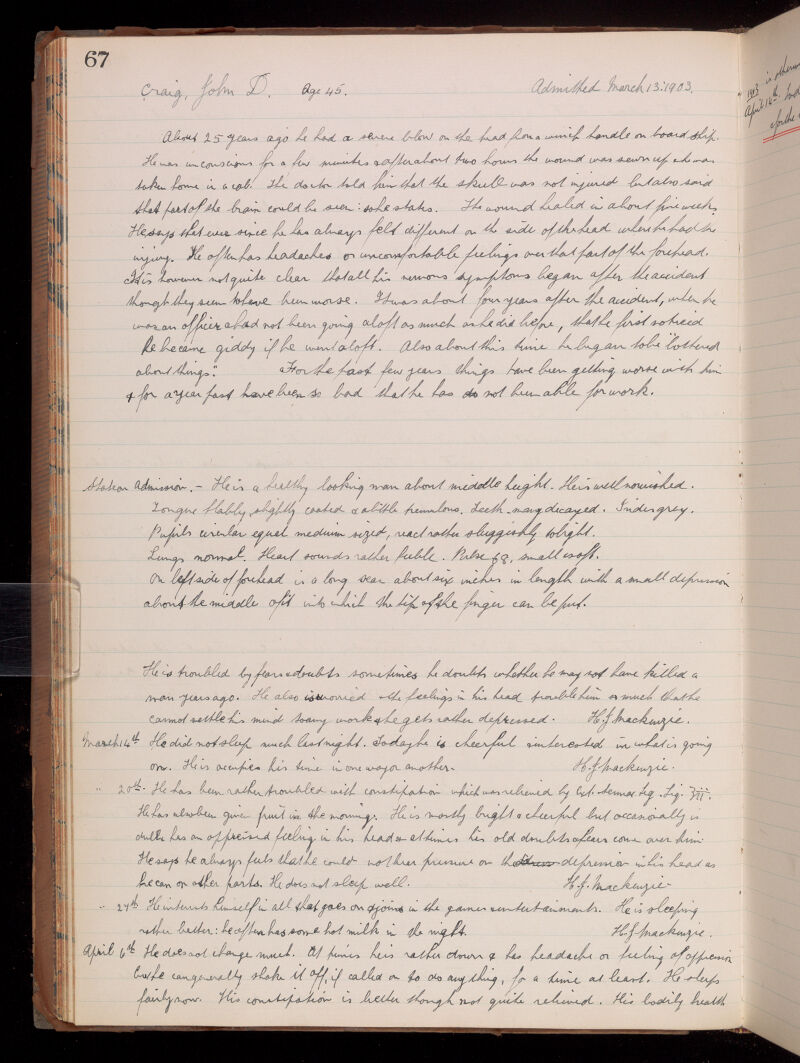 67
Craig, John D. Age 45. Admitted March 13: 1903.
About 25 years ago he had a severe blow on the head from a winch handle on board ship.
He was unconscious for a few minutes & after about two hours the wound was sewn up & he was
taken home in a cab. The doctor told him that the skull was not injured but also said
that part of the brain could be seen: so he states. The wound healed in about five weeks.
He says that ever since he has always felt different on the side of the head where he had the
injury. He often has headaches or uncomfortable feelings over that part of the forehead.
It is however not quite clear that all his nervous symptoms began after the accident
though they seem to have been worse. It was about four years after the accident, when he
was an officer & had not been going aloft as much as he did before, that he first noticed
he became giddy if he went aloft. Also about this time he began to be "bothered
about things". For the past few years things have been getting worse with him
& for a year past have been so bad that he has not been able for work.
State on Admission. - He is a healthy looking man about middle height. He is well nourished.
Tongue flabby, slightly coated & a little tremulous, teeth many decayed. Irides grey.
Pupils circular equal medium sized, react rather sluggishly to light.
Lungs normal. Heart sounds rather feeble. Pulse 68, small & soft.
On left side of forehead is a long scar about six inches in length with a small depression
about the middle of it into which the tip of the finger can be put.
He is troubled by fears & doubts sometimes he doubts whether he may not have killed a
man years ago. He also is worried & the feelings in his head trouble him so much that he
cannot settle his mind to any work & he gets rather depressed. H.J. Mackenzie.
March 14th He did not sleep much last night. Today he is cheerful & interested in what is going
on. He is occupies his time in one way or another. H.J. Mackenzie.
" 20th. He has been rather troubled with constipation which was relieved by Ext. Sennae Leg. Liq. ʒiii.
He has also been given fruit in the mornings. He is mostly bright & cheerful but occasionally is
dull & has an oppressed feeling in his head & at times his old doubts & fears come over him
He says he always feels that he could not bear pressure on the depression in his head as
he can on other parts. He does not sleep well. H.J. Mackenzie
" 24th He interests himself in all that goes on & joins in the games & entertainments. He is sleeping
rather better: he often has some hot milk in the night. H.J. Mackenzie.
April 6th He does not change much. At times he is rather down & has headache or feeling of oppression
but he can generally shake it off, if called on to do anything, for a time at least. He sleeps
fairly now. His constipation is better though not quite relieved. His bodily health
1903
April 14th